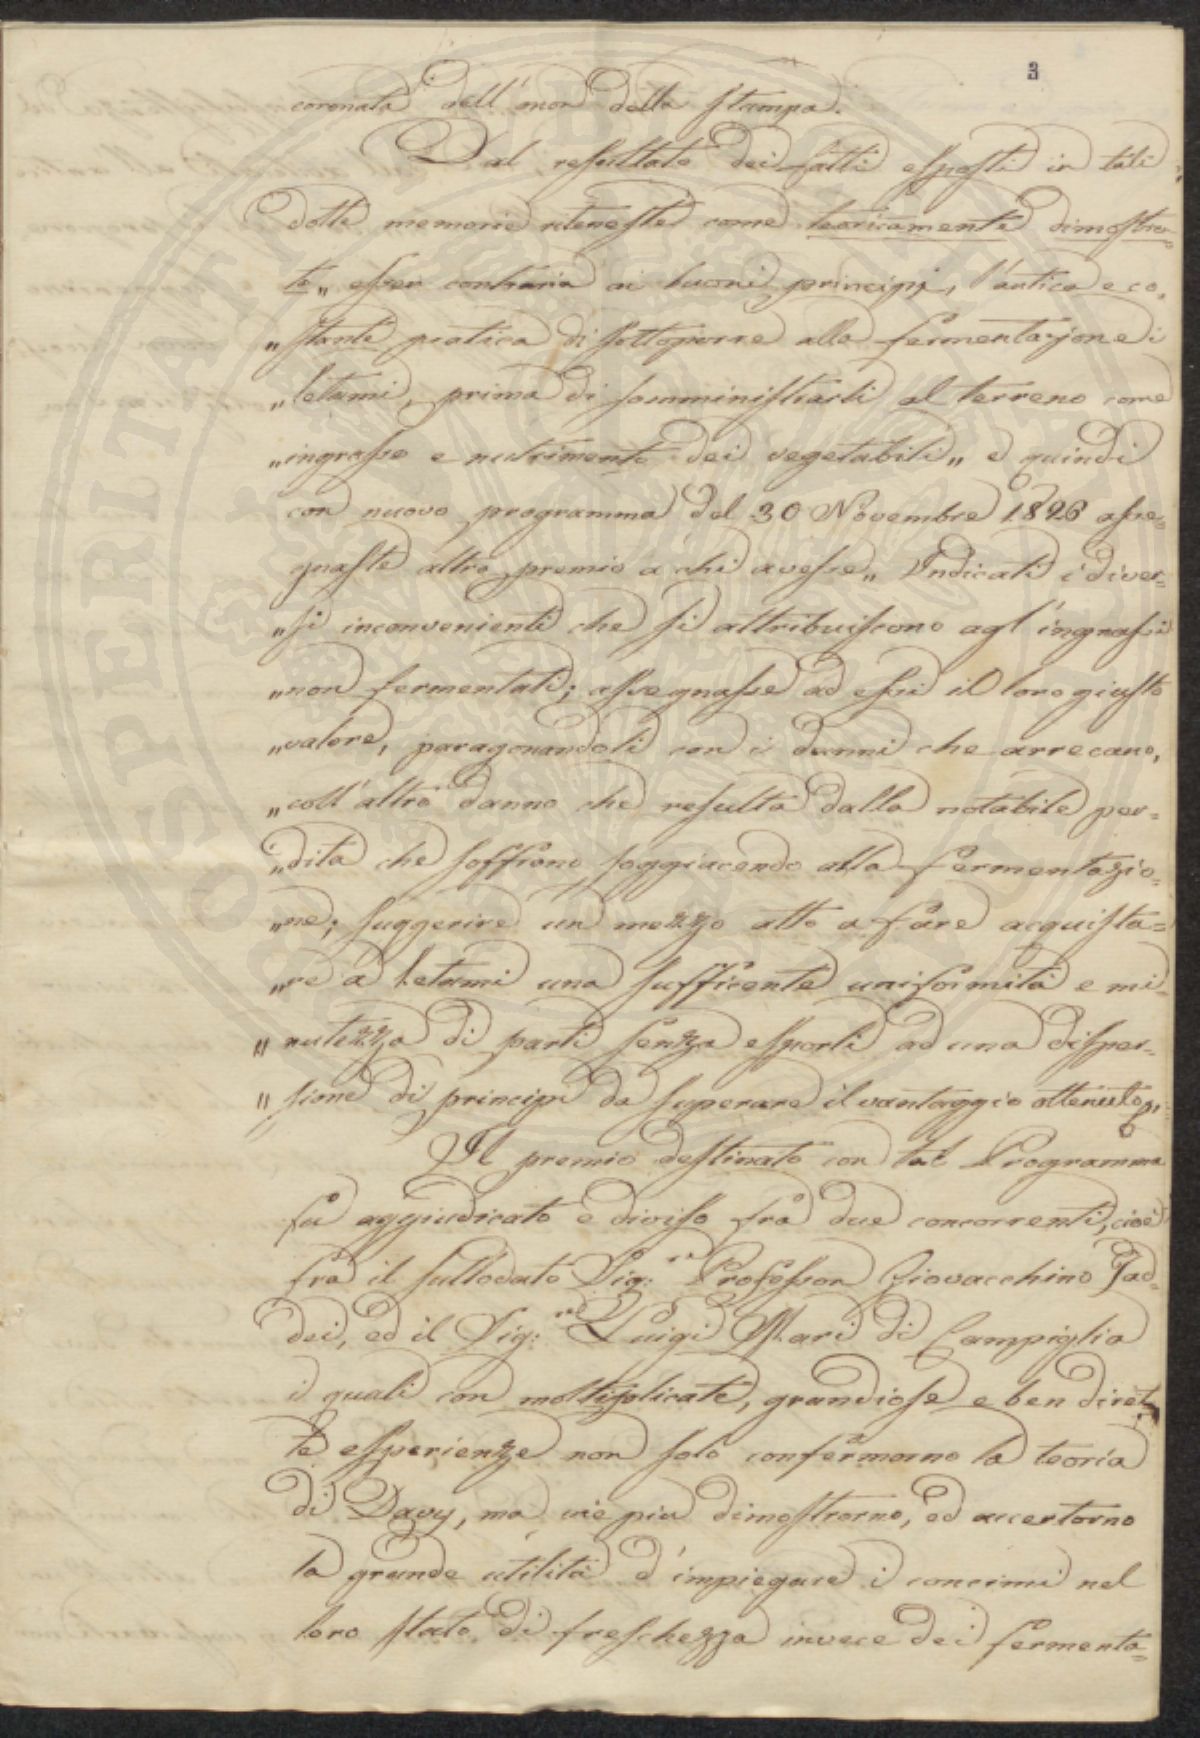 3
coronata dell'onor della stampa.
Dal resultato dei fatti esposti in tali
dotte memorie riteneste come teoricamente dimostra=
to „ esser contraria ai buoni principj, l'antica e co=
„stante pratica di sottoporre alla fermentazione i
„letami, prima di somministrarli al terreno come
„ingrasso e nutrimento dei vegetabili„ e quindi
con nuovo programma del 30 Novembre 1826 asse=
gnaste altro premio a chi avesse „ Indicati i diver=
„si inconvenienti che si attribuiscono agl'ingrassi
„non fermentati; assegnasse ad essi il loro giusto
„valore, paragonandoli con i danni che arrecano,
„coll'altro danno che resulta dalla notabile per=
„dita che soffrono soggiacendo alla fermentazio=
„ne; suggerire un mezzo atto a fare acquista=
„re a letami una sufficente uniformità e mi=
„nutezza di parti senza esporli ad una disper=
„sione di principi da superare il vantaggio ottenuto„.
Il premio destinato con tal Programma
fu aggiudicato e diviso fra due concorrenti, cioè
fra il sullodato Sig:re Professor Giovacchino Tad=
dei, ed il Sig:re Luigi Mari di Campiglia
i quali con moltiplicate, grandiose e ben diret=
te esperienze non solo confermarno la teoria
di Davy, ma viè più dimostrarno, ed accertorno
la grande utilità d'impiegare i concimi nel
loro stato di freschezza invece dei fermenta=